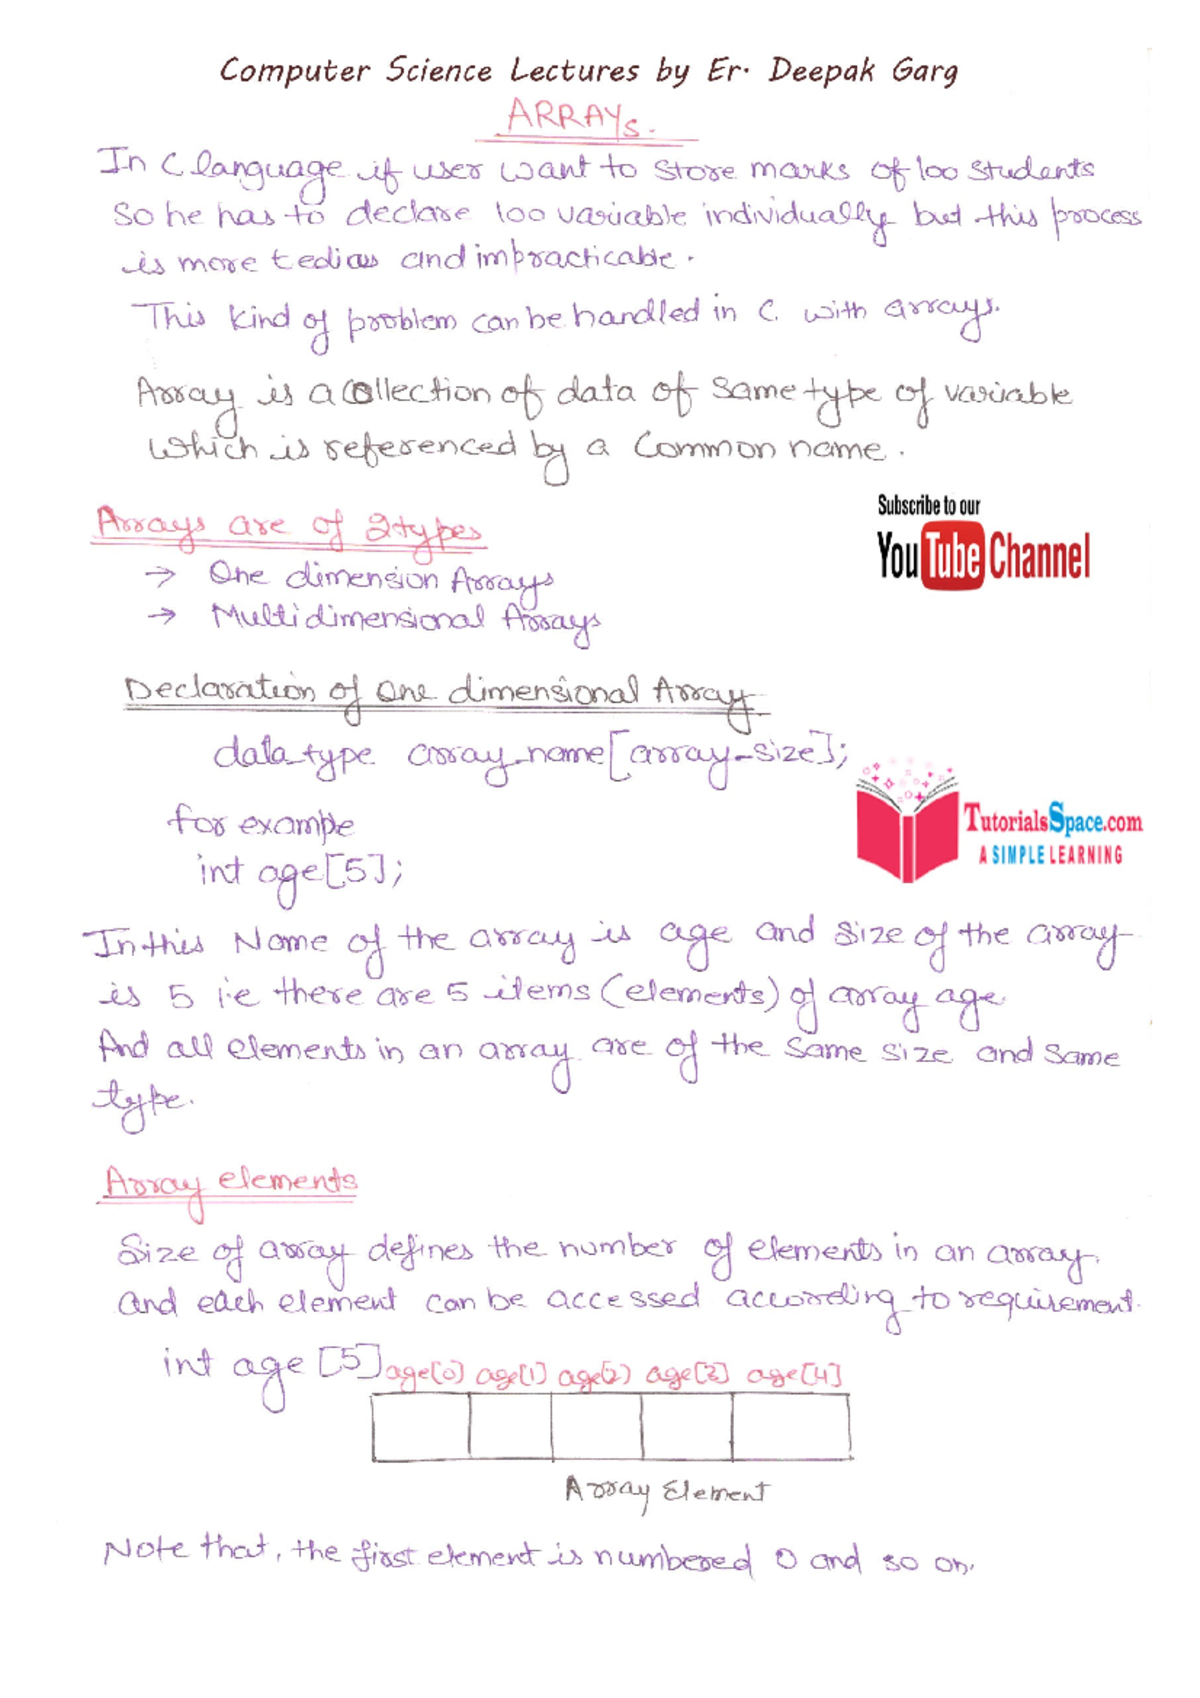 Computer Science Lectures by Er. Deepak Garg
ARRAYs.
In C language if user want to store marks of 100 students
So he has to declare 100 variable individually but this process
is more tedious and impracticable.
This kind of problem can be handled in C. with arrays.
Array is a collection of data of same type of variable
which is referenced by a common name.
Arrays are of 2 types
Subscribe to our
YouTube Channel
→ One dimension Arrays
→ Multidimensional Arrays
Declaration of one dimensional Array
data_type array_name[array_size];
for example
TutorialsSpace.com
A SIMPLE LEARNING
int age[5];
In this Name of the array is age and size of the array
is 5 i.e there are 5 items (elements) of array age
And all elements in an array are of the same size and same
type.
Array elements
Size of array defines the number of elements in an array.
and each element can be accessed according to requirement.
int age [5] age[0] age[1] age[2] age[3] age[4]
Array Element
Note that, the first element is numbered 0 and so on.